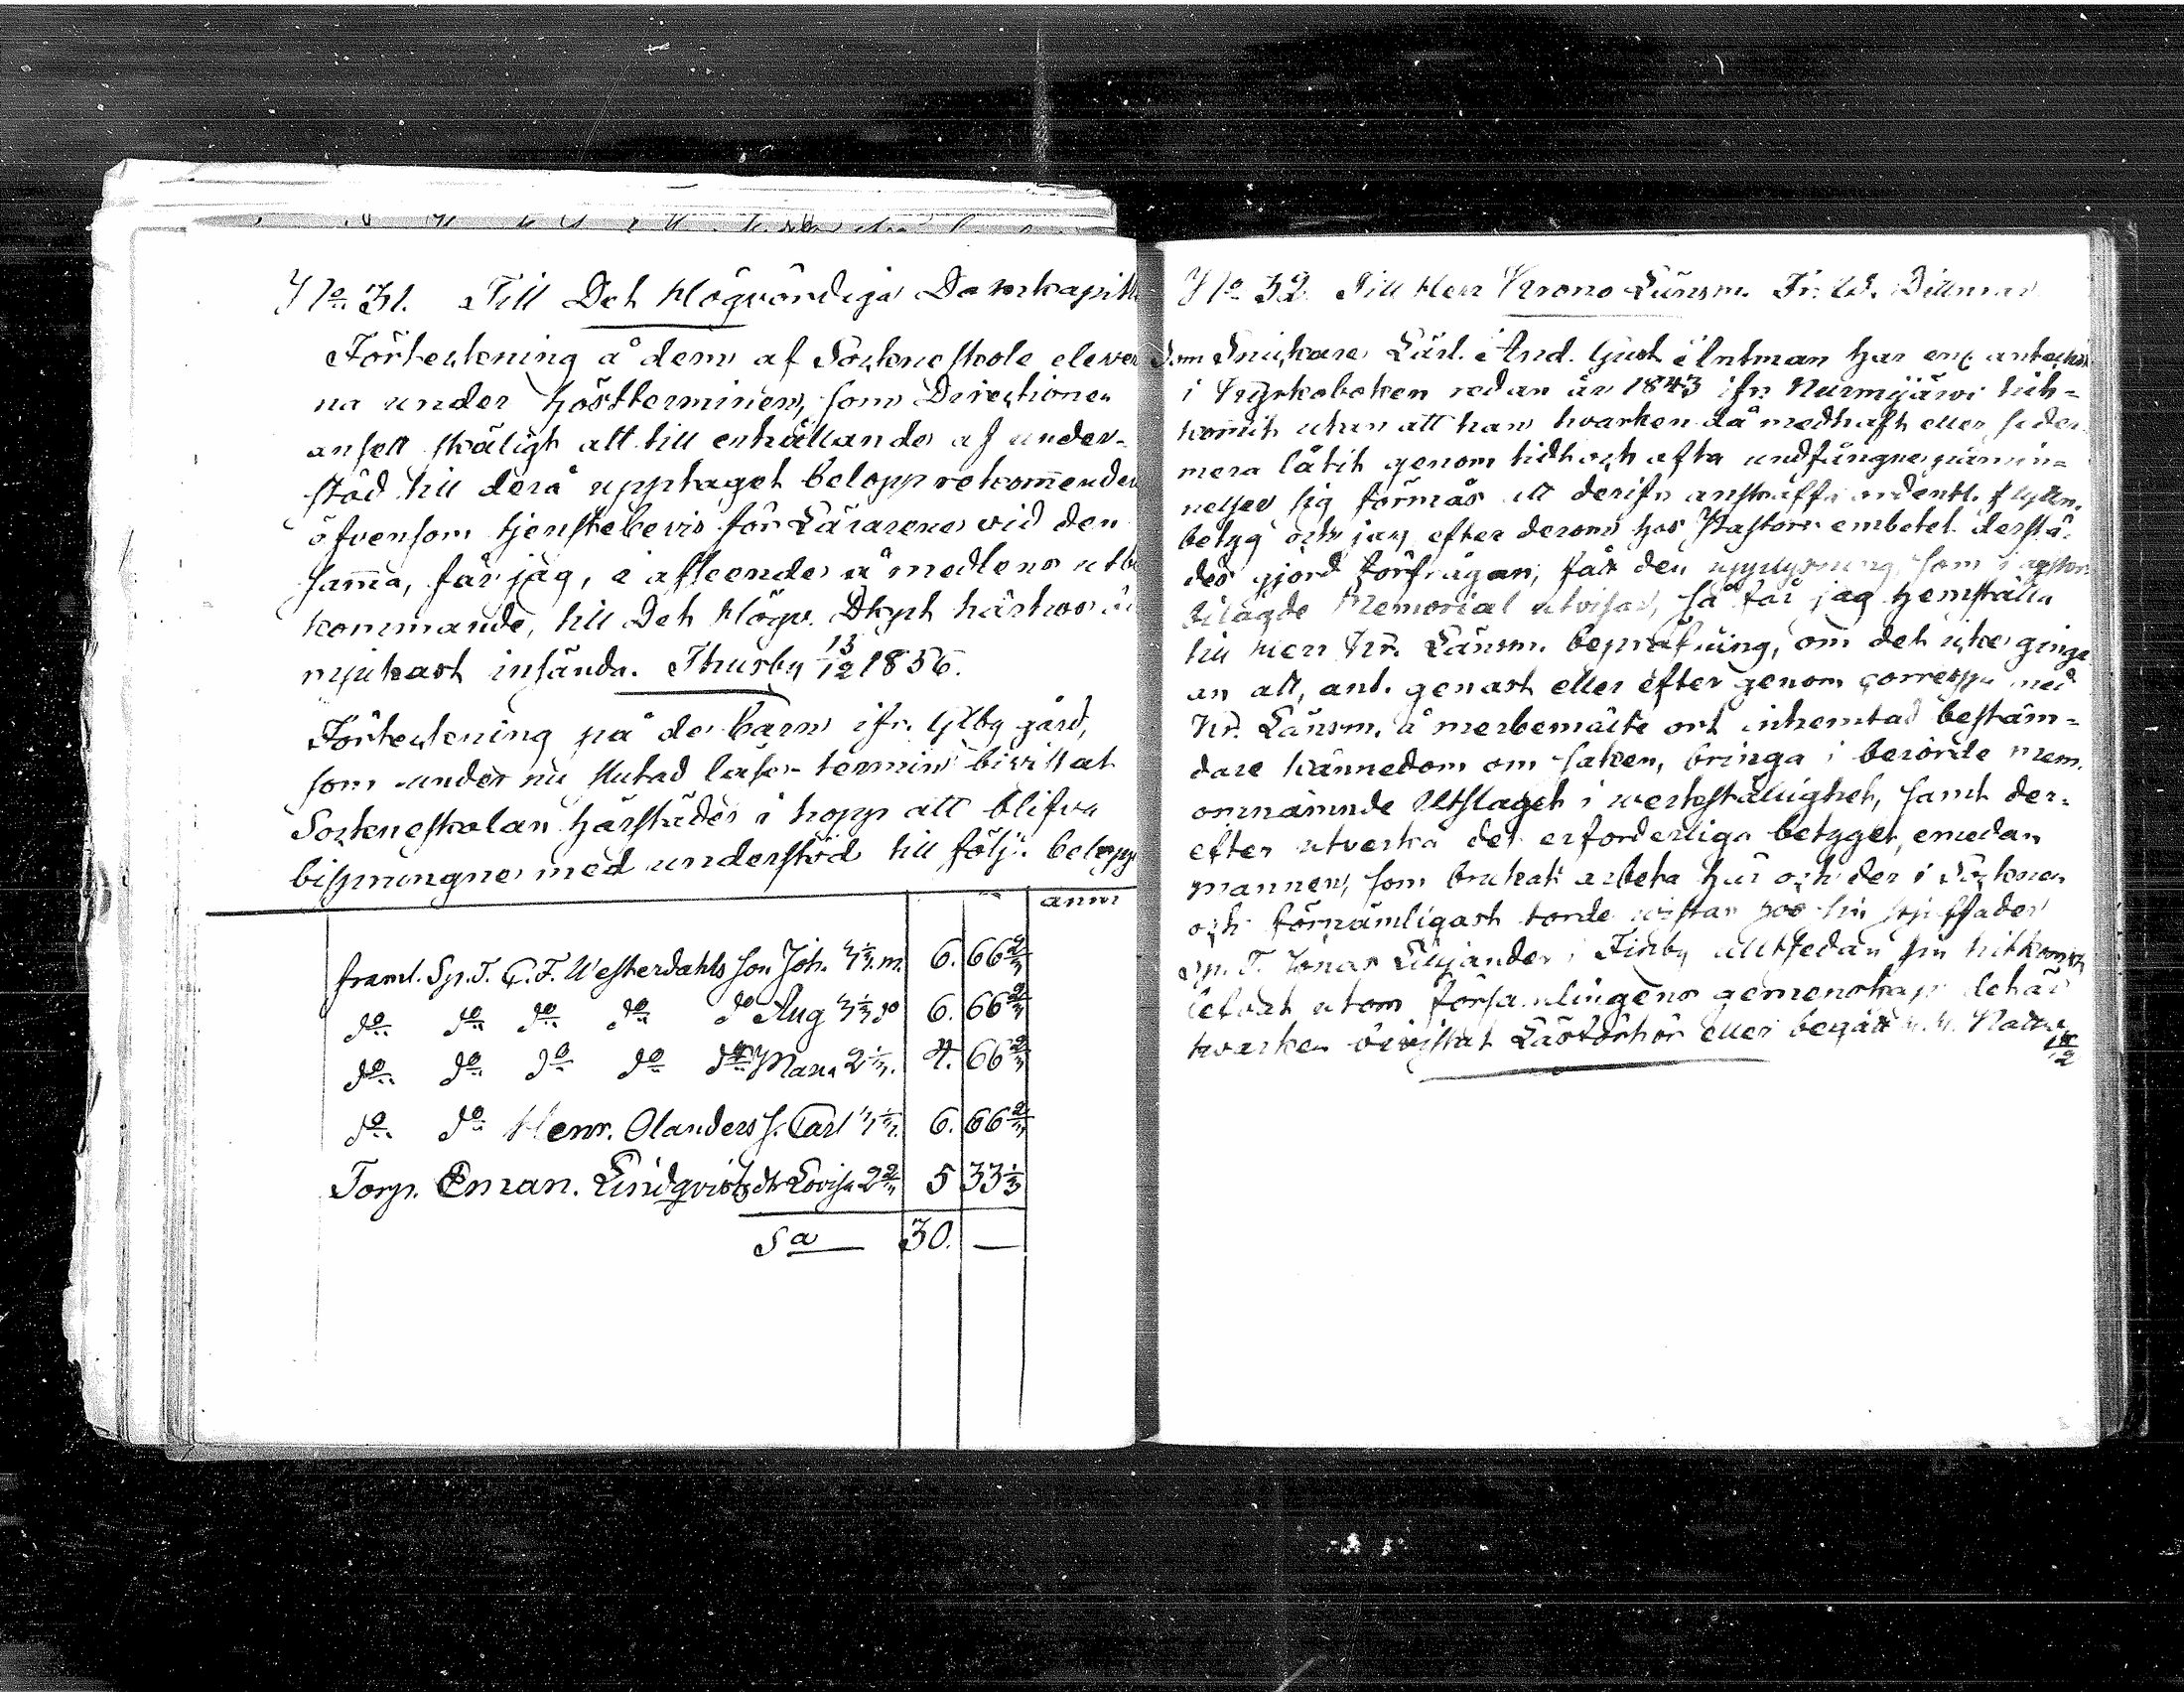 No 31. Till Det Högvördiga Domkapitl
Förteckning å dem af Sockneskole elever
na under höstterminen, som Directionen
ansett skäligt att till erhållande af under-
stöd till derå upptaget belopp rekom̄ender
äfvensom tjenstebevis för Lärarene vid den
sam̄a, får jag, i afseende å medlens utbe
kommande, till Det Högv. Dkpit härhos
mjukast insända. Thusby 13/12 1856.
Förteckning på de barn ifr. Gl:by gård,
som under nu slutad läse-termin bivistat
Sockneskolan härstädes i hopp att blifva
bisprungne med understöd till följ: belopp
anm
framl. Sp.T. C.F. Westerdahls son Joh. 3 1/3 m. 6. 66 2/3
do do do do do Aug 3 1/3 do 6. 66 2/3
do do do do do Maria 2 1/3. 4. 66 2/3
do do Henr. Olanders s. Carl 3 1/3. 6. 66 2/3
Torp. Eman. Lindqvists dr Lovisa 2 2/3 5 33 1/3
Sa 30. —
No 32. Till Herr Krono Länsm. Fr. W. Dillmar
Som Snickare Lärl. And. Gust. Antman har enl anteckn
i Kyrkoboken redan år 1843 ifr. Nurmijärvi hit-
kommit utan att han hvarken då medhaft eller seder
mera låtit genom tidt och ofta undfångne påmin-
nelser sig förmås att derifr anskaffa ordentl. flyttn.
betyg och jag efter derom hos Pastors embetet derstä-
des gjord förfrågan, fått den upplysning, som
bilagde Memorial utvisar, så får jag hemställa
till Herr Kr. Länsm. bepröfning, om det icke ginge
an att, ant. genast eller efter genom corresp. med
Kr. Länsm. å merbemälte ort inhemtad bestäm-
dare kännedom om saken, bringa i berörde mem.
omnämnde Utslaget i werkställighet, samt der-
efter utverka det erforderliga betyget, emedan
mannen, som brukat arbeta här och der i Socknen
och förnämligast torde vistas hos sin
Sp. T. Jonas Liljander i Finby alltsedan sin hitkomst
lefvat utom församlingens gemenskap dehär
hvarken bivistat Läsförhör eller begått h. h. Nattv.